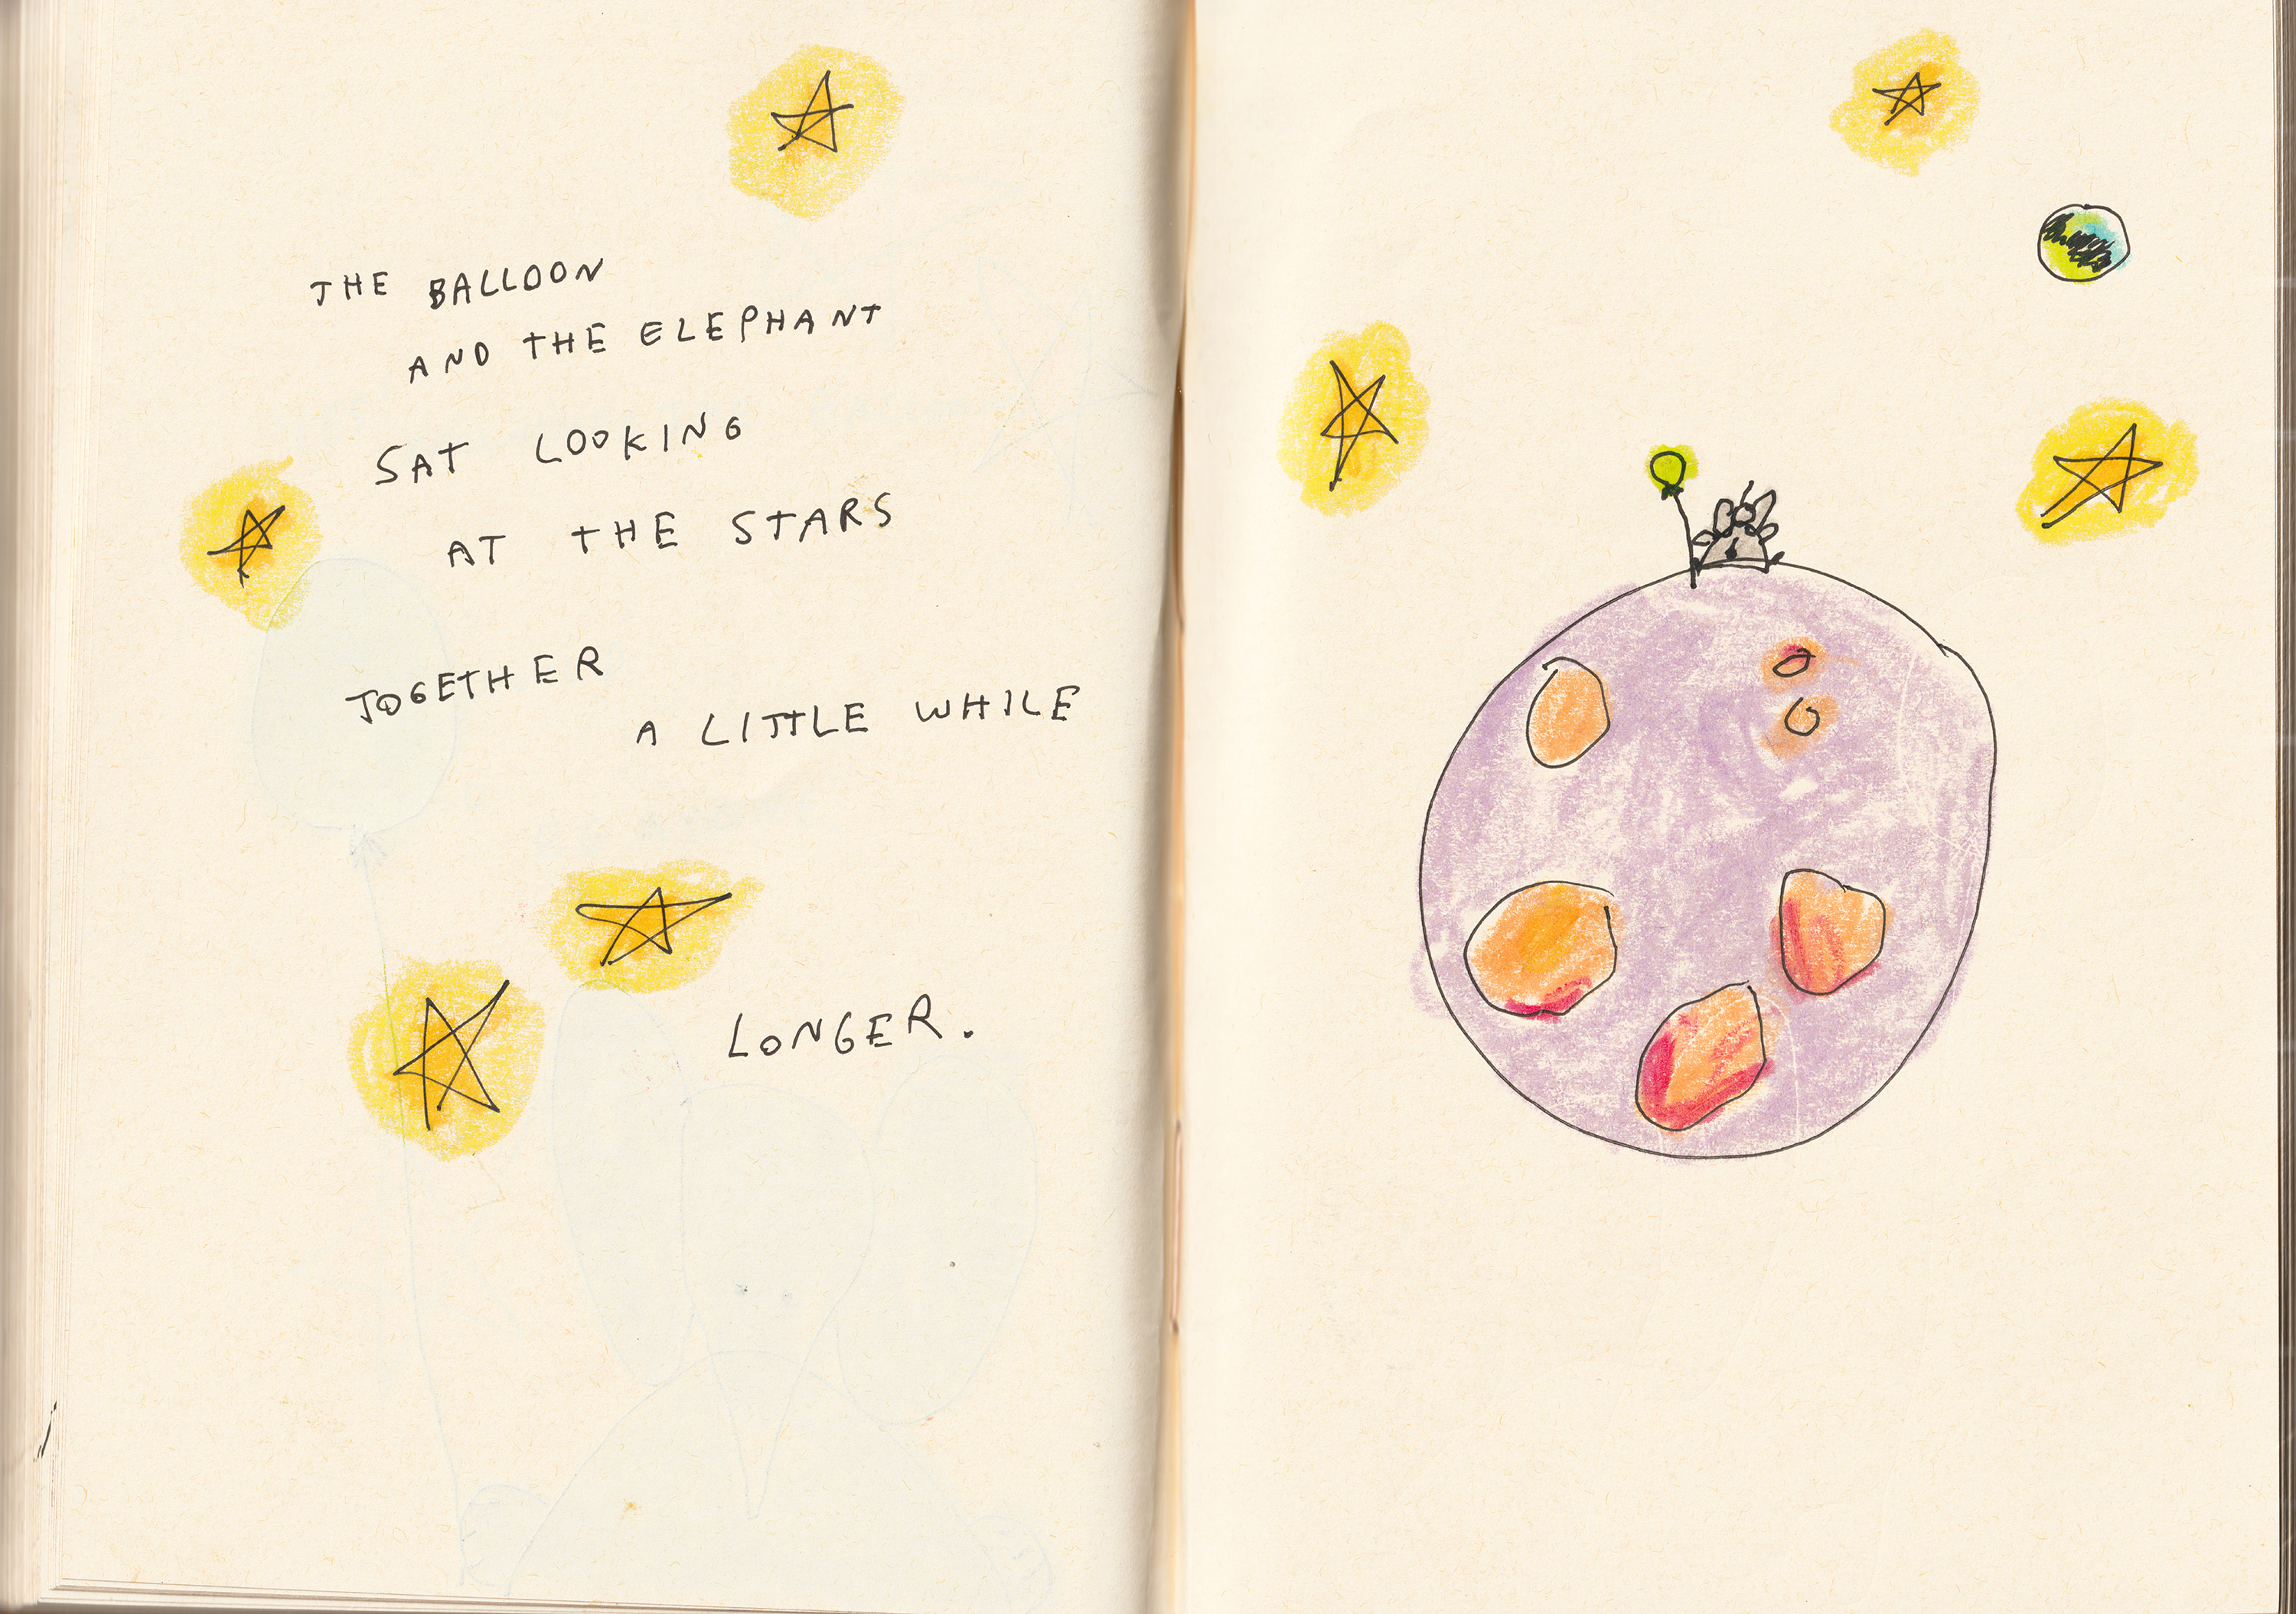 THE BALLOON
AND THE ELEPHANT
SAT LOOKING
AT THE STARS
TOGETHER
A LITTLE WHILE
LONGER.